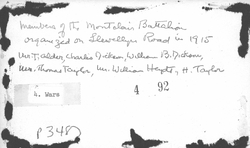 members of the Montclair Battalion
organized on Llewellyn Road in 1915
Mr. T. Calder, Charles Dickson, William B. Dickson,
Mr. Thomas Taylor, Mr. William Heydt, H. Taylor
4 92
h. Wars
p 348